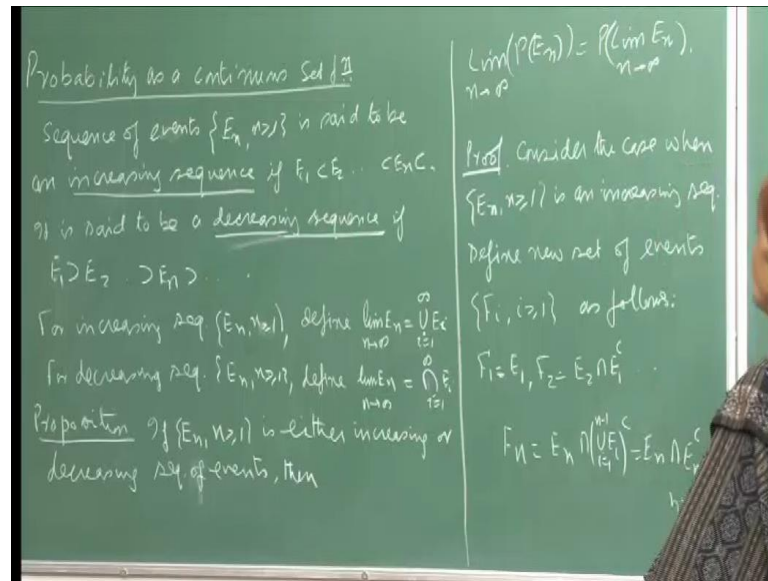 Probability as a continuous Set fn
Sequence of events {En, n≥1} is said to be
an increasing sequence if E1 ⊂ E2 .. ⊂ En ⊂ .
It is said to be a decreasing sequence if
E1 ⊃ E2 .. ⊃ En ⊃ . . .
For increasing seq. {En, n≥1}, define lim n→∞ En = ∞ ∪ i=1 Ei
For decreasing seq. {En, n≥1}, define lim n→∞ En = ∞ ∩ i=1 Ei
Proposition If {En, n≥1} is either increasing or
decreasing seq. of events, then
Lim n→∞ (P(En)) = P(Lim n→∞ En).
Proof. Consider the case when
{En, n≥1} is an increasing seq.
Define new set of events
{Fi, i≥1} as follows:
F1 = E1, F2 = E2 ∩ E1^C . . .
Fn = En ∩ (n-1 ∪ i=1 Ei)^C = En ∩ E^C